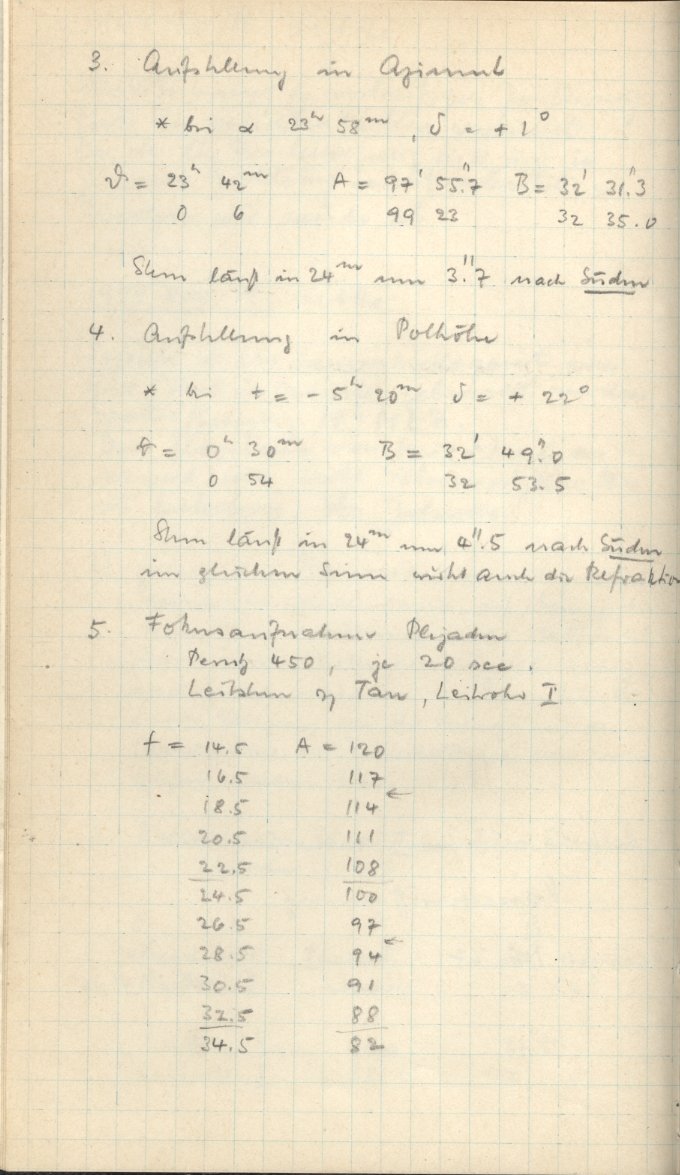 3. Aufstellung in Azimut
* bei α 23ʰ 58ᵐ, δ = +1°
ϑ = 23ʰ 42ᵐ A = 97' 55".7 B = 32' 31".3
0 6 99 23 32 35.0
Stern läuft in 24ᵐ um 3".7 nach Süden
4. Aufstellung in Polhöhe
* bei t = - 5ʰ 20ᵐ δ = + 22°
ϑ = 0ʰ 30ᵐ B = 32' 49".0
0 54 32 53.5
Stern läuft in 24ᵐ um 4".5 nach Süden
im gleichen Sinne wirkt auch die Refraktion
5. Fokusaufnahme Plejaden
Perutz 450, je 20 sec.
Leitstern η Tau, Leitrohr I
f = 14.5 A = 120
16.5 117
←
18.5 114
20.5 111
22.5 108
24.5 100
26.5 97
←
28.5 94
30.5 91
32.5 88
34.5 82